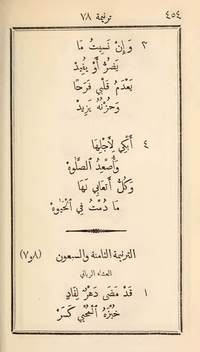 ٤٥٤ ترنيمة ٧٨
٣ وَإِنْ نَسِيتُ مَا
يَضُرُّ أَوْ يُفِيدْ
يَعْدَمُ قَلْبِي فَرَحًا
وَحُزْنُهُ يَزِيدْ
٤ أَبْكِي لِأَجْلِهَا
وَأُصْعِدُ ٱلصَّلٰوةْ
وَكُلُّ أَتْعَابِي لَهَا
مَا دُمْتُ فِي ٱلْحَيٰوةْ
الترنيمة الثامنة والسبعون (٨و٧)
العشاء الرباني
١ قَدْ مَضَى دَهْرٌ لِفَادٍ
خُبْزَهُ ٱلْمُحْيِي كَسَرْ